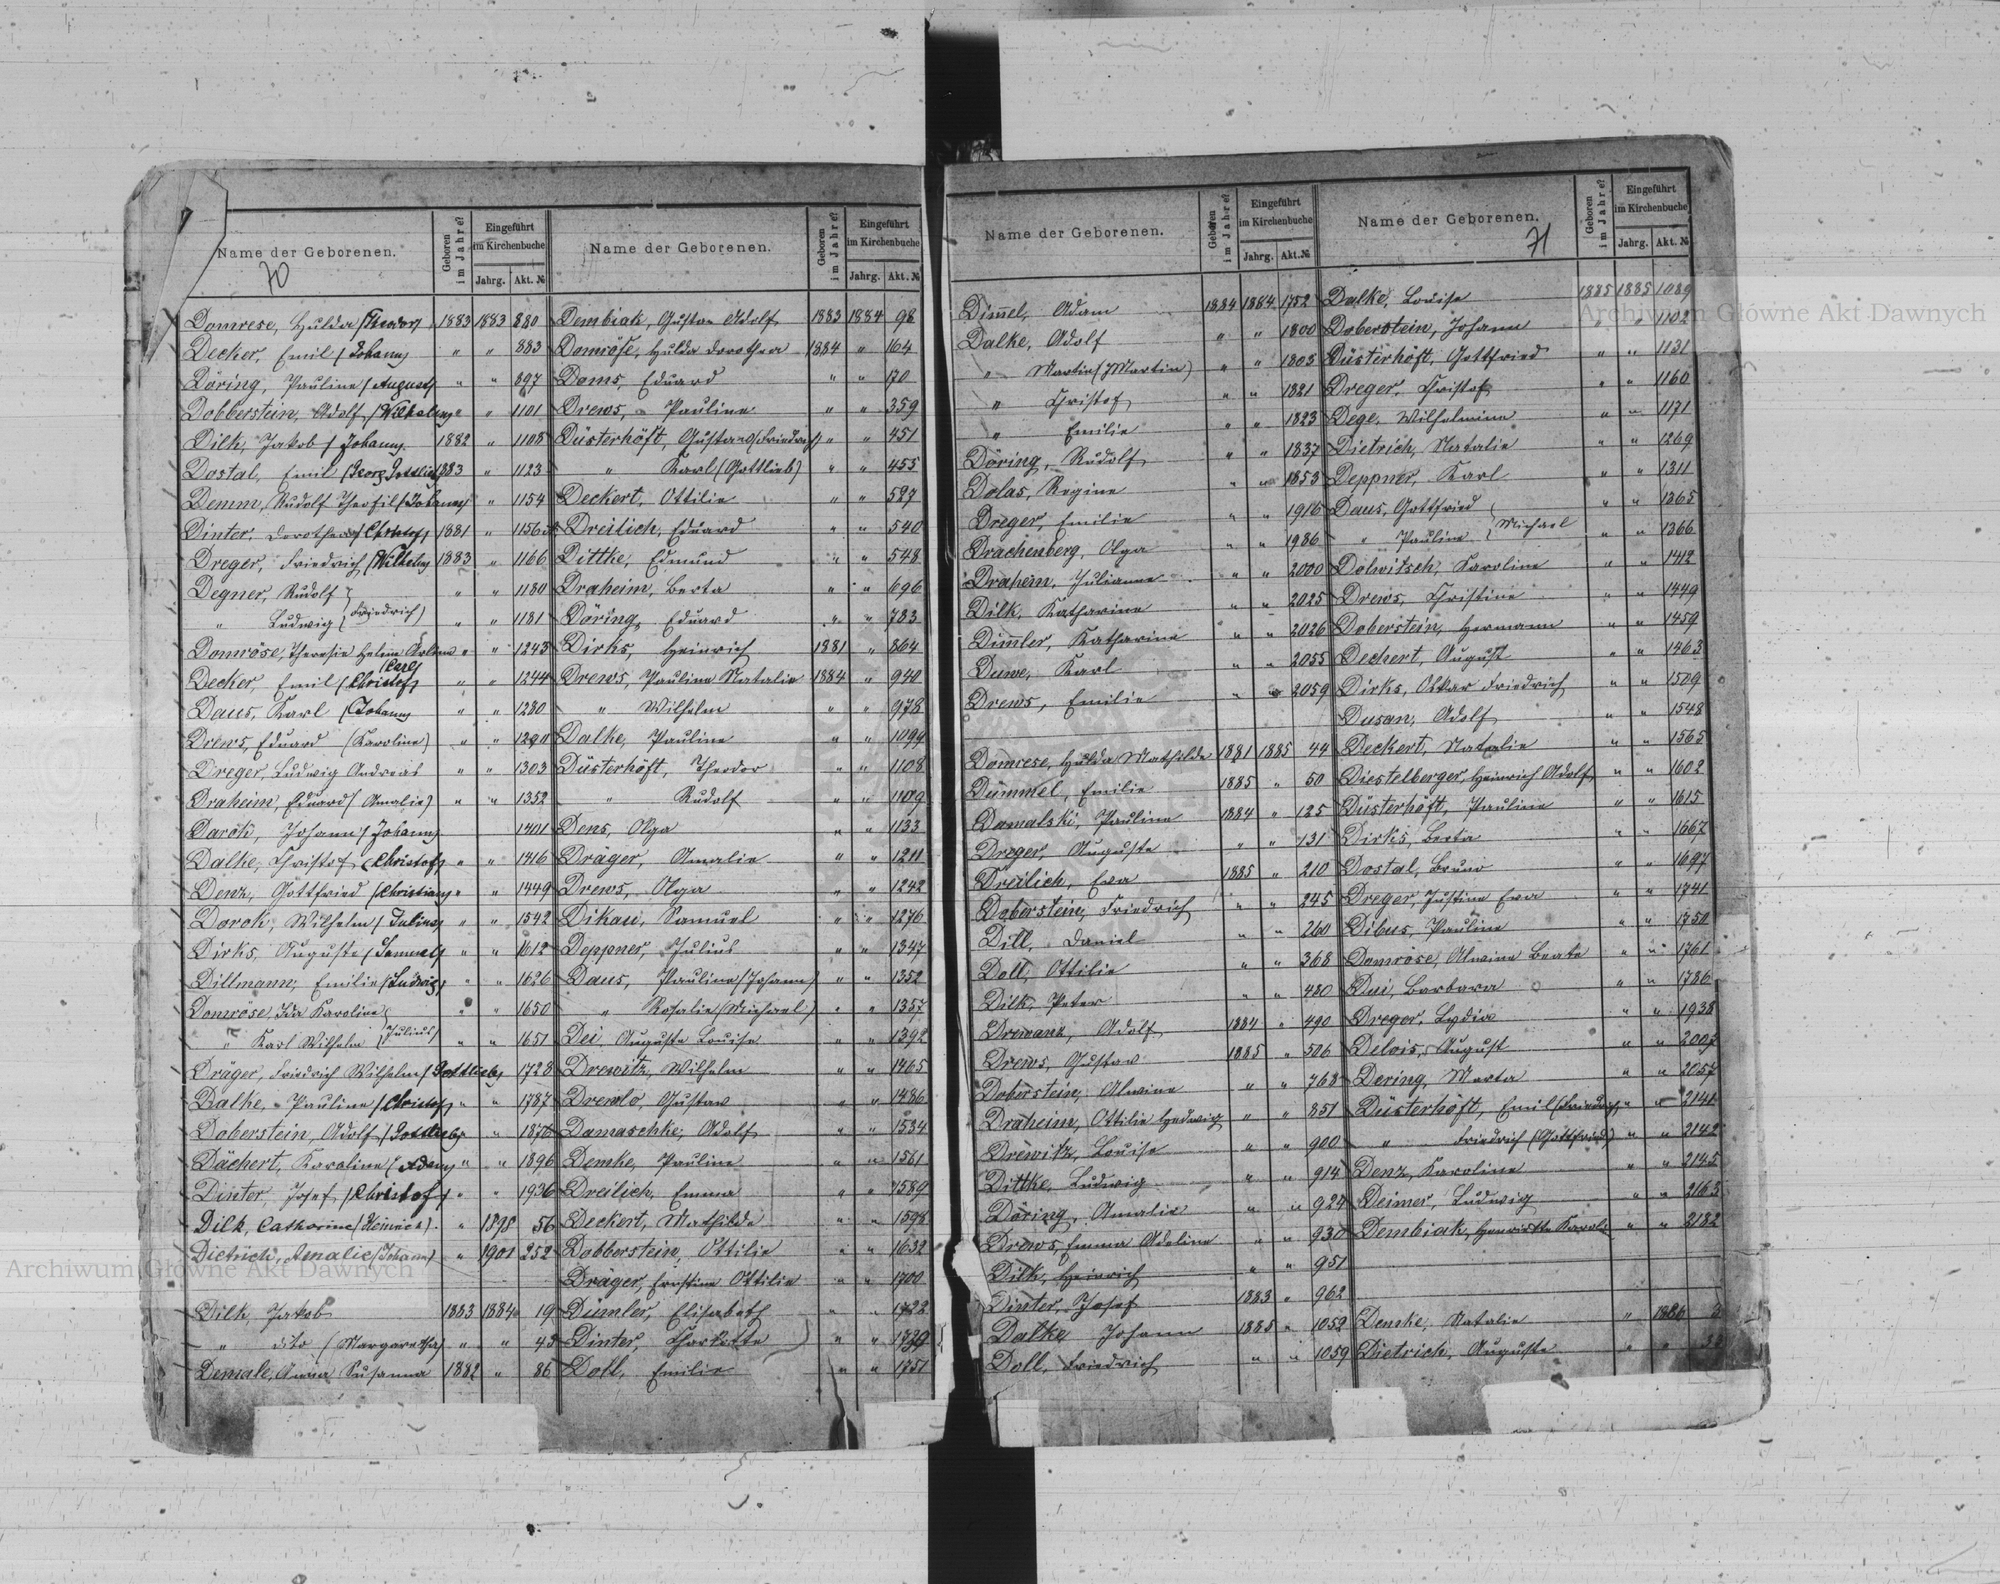 Name der Geborenen.
70
Geboren im Jahre?
Eingeführt im Kirchenbuche
Jahrg. Akt. №
Domrese, Hulda (Theodor) 1883 1883 880
Decker, Emil (Johann) " " 883
Döring, Pauline (August) " " 897
Dobberstein, Adolf (Wilhelm) " " 1101
Dilk, Jakob (Johann) 1882 " 1108
Dostal, Emil (Georg Gottlieb) 1883 " 1123
Demm, Rudolf Theofil (Johann) " " 1154
Dinter, Dorothea (Christof) 1881 " 1156
Dreger, Friedrich (Wilhelm) 1883 " 1166
Degner, Rudolf " " 1180
" Ludwig (Friedrich) " " 1181
Domröse, Theresie Helene " " 1243
Decker, Emil (Christof) " " 1244
Daus, Karl (Johann) " " 1280
Drews, Eduard (Karoline) " " 1290
Dreger, Ludwig Andreas " " 1303
Draheim, Eduard (Amalie) " " 1352
Darok, Johann (Johann) 1401
Dalke, Christof (Christof) " " 1416
Denz, Gottfried (Christian) " " 1449
Dorok, Wilhelm (Julius) " " 1542
Dirks, Auguste (Samuel) " " 1612
Dillmann, Emilie (Ludwig) " " 1626
Domröse, Ida Karoline " " 1650
" Karl Wilhelm (Julius) " " 1651
Dräger, Friedrich Wilhelm (Gottlieb) " 1728
Dalke, Pauline (Christof) " " 1787
Doberstein, Adolf (Gottlieb) " 1870
Dächert, Karoline (Adam) " " 1896
Dinter, Josef (Christof) " " 1936
Dilk, Catharine (Heinrich) " 1898 56
Dietrich, Amalie (Johann) " 1901 252
Dilk, Jakob 1883 1884 19
" dito (Margaretha) " " 43
Demale, Anna Susanna 1882 " 86
Name der Geborenen.
Geboren im Jahre?
Eingeführt im Kirchenbuche
Jahrg. Akt. №
Dembiak, Gustav Adolf 1883 1884 98
Domröse, Hulda Dorothea 1884 " 164
Doms, Eduard " " 170
Drews, Pauline " " 359
Düsterhöft, Gustav (Friedrich) " " 451
" Karl (Gottlieb) " " 455
Deckert, Ottilie " " 527
Dreilich, Eduard " " 540
Dittke, Edmund " " 548
Draheim, Berta " " 696
Döring, Eduard " " 783
Dirks, Heinrich 1881 " 864
Drews, Pauline Natalie 1884 " 940
" Wilhelm " " 978
Dalke, Pauline " " 1094
Düsterhöft, Theodor " " 1108
" Rudolf " " 1109
Dens, Olga " " 1133
Dräger, Amalie " " 1211
Drews, Olga " " 1242
Dikau, Samuel " " 1276
Deppner, Julius " " 1347
Daus, Pauline (Johann) " " 1352
" Rosalie (Michael) " " 1357
Dei, Auguste Louise " " 1392
Drewitz, Wilhelm " " 1465
Drewlo, Gustav " " 1486
Damaschke, Adolf " " 1534
Demke, Pauline " " 1561
Dreilich, Emma " " 1589
Deckert, Mathilde " " 1598
Dobberstein, Ottilie " " 1632
Dräger, Ernstine Ottilie " " 1700
Dümler, Elisabeth " " 1722
Dinter, Charlotte " " 1729
Doll, Emilie " " 1751
Name der Geborenen.
Geboren im Jahre?
Eingeführt im Kirchenbuche
Jahrg. Akt. №
Dim̅el, Adam 1884 1884 1752
Dalke, Adolf " " 1800
" Martin (Martin) " " 1803
" Christof " " 1821
" Emilie " " 1823
Döring, Rudolf " " 1837
Dolas, Regine " " 1853
Dreger, Emilie " " 1916
Drachenberg, Olga " " 1986
Draheim, Julianne " " 2000
Dilk, Katharine " " 2025
Dim̅ler, Katharine " " 2026
Duwe, Karl " " 2055
Drews, Emilie " " 2059
Domrese, Hulda Mathilde 1881 1885 44
Dümmel, Emilie 1885 " 50
Damalski, Pauline 1884 " 125
Dreger, Auguste " " 131
Dreilich, Eva 1885 " 210
Doberstein, Friedrich " " 245
Dill, Daniel " " 260
Doll, Ottilie " " 368
Dilk, Peter " " 480
Drewanz, Adolf 1884 " 490
Drews, Gustav 1885 " 506
Doberstein, Alwine " " 768
Draheim, Ottilie Hedwig " " 851
Drewitz, Louise " " 900
Dittke, Ludwig " " 914
Döring, Amalie " " 924
Drews, Emma Adeline " " 930
Dilk, Heinrich " " 951
Dinter, Josef 1883 " 962
Dalke Johann 1885 " 1052
Doll, Friedrich " " 1059
Name der Geborenen.
71
Geboren im Jahre?
Eingeführt im Kirchenbuche
Jahrg. Akt. №
Dalke, Louise 1885 1885 1089
Doberstein, Johann " " 1102
Düsterhöft, Gottfried " " 1131
Dreger, Christof " " 1160
Dege, Wilhelmine " " 1171
Dietrich, Natalie " " 1269
Deppner, Karl " " 1311
Daus, Gottfried " " 1365
" Pauline (Michael " " 1366
Dolwitsch, Karoline " " 1412
Drews, Christine " " 1449
Doberstein, Hermann " " 1459
Dechert, August " " 1463
Dirks, Oskar Friedrich " " 1509
Dusan, Adolf " " 1548
Deckert, Natalie " " 1565
Diestelberger, Heinrich Adolf " " 1602
Düsterhöft, Pauline " " 1615
Dirks, Berta " " 1667
Dostal, Bruno " " 1697
Dreger, Justine Eva " " 1741
Dibus, Pauline " " 1750
Domröse, Alwine Beate " " 1761
Dui, Barbara " " 1786
Dreger, Lydia " " 1938
Delois, August " " 2007
Dering, Marta " " 2057
Düsterhöft, Emil (Friedrich) " " 2141
" Friedrich (Gottfried) " " 2142
Denz, Karoline " " 2145
Deimer, Ludwig " " 2163
Dembiak, Henriette Karol. " " 2182
Demke, Natalie " 1886 3
Dietrich, Auguste " " 33
Archiwum Główne Akt Dawnych
Archiwum Główne Akt Dawnych